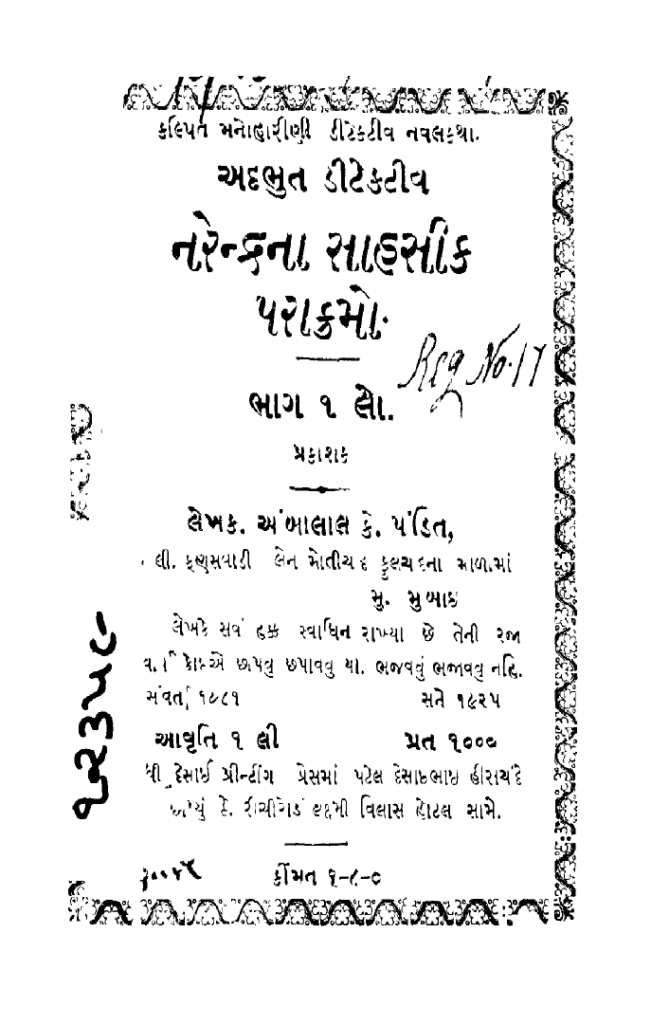 કલ્પિત મનોહારીણી ડીટેકટીવ નવલકથા.
અદભુત ડીટેકટીવ
નરેન્દ્રના સાહસીક
પરાક્રમો.
Reg No. 17
ભાગ ૧ લો.
પ્રકાશક
લેખક. અંબાલાલ કે. પંડિત,
લી. કૃષ્ણસવાડી લેન મોતીચંદ ફુલચંદના માળામાં
મુ. મુંબાઇ
લેખકે સર્વ હક્ક સ્વાધિન રાખ્યા છે તેની રજા
કોઇએ છાપવુ છપાવવુ યા. ભજવવું ભજાવવુ નહિ.
સંવત ૧૯૮૧ સને ૧૯૨૫
આવૃતિ ૧ લી પ્રત ૧૦૦૦
ધી દેસાઈ પ્રીન્ટીંગ પ્રેસમાં પટેલ દેસાઇભાઇ હીરાચંદે
છાપ્યું ઠે. રીચીરોડ લક્ષ્મી વિલાસ હોટલ સામે.
કીંમત ૧-૮-૦
૬૨૩૫૯